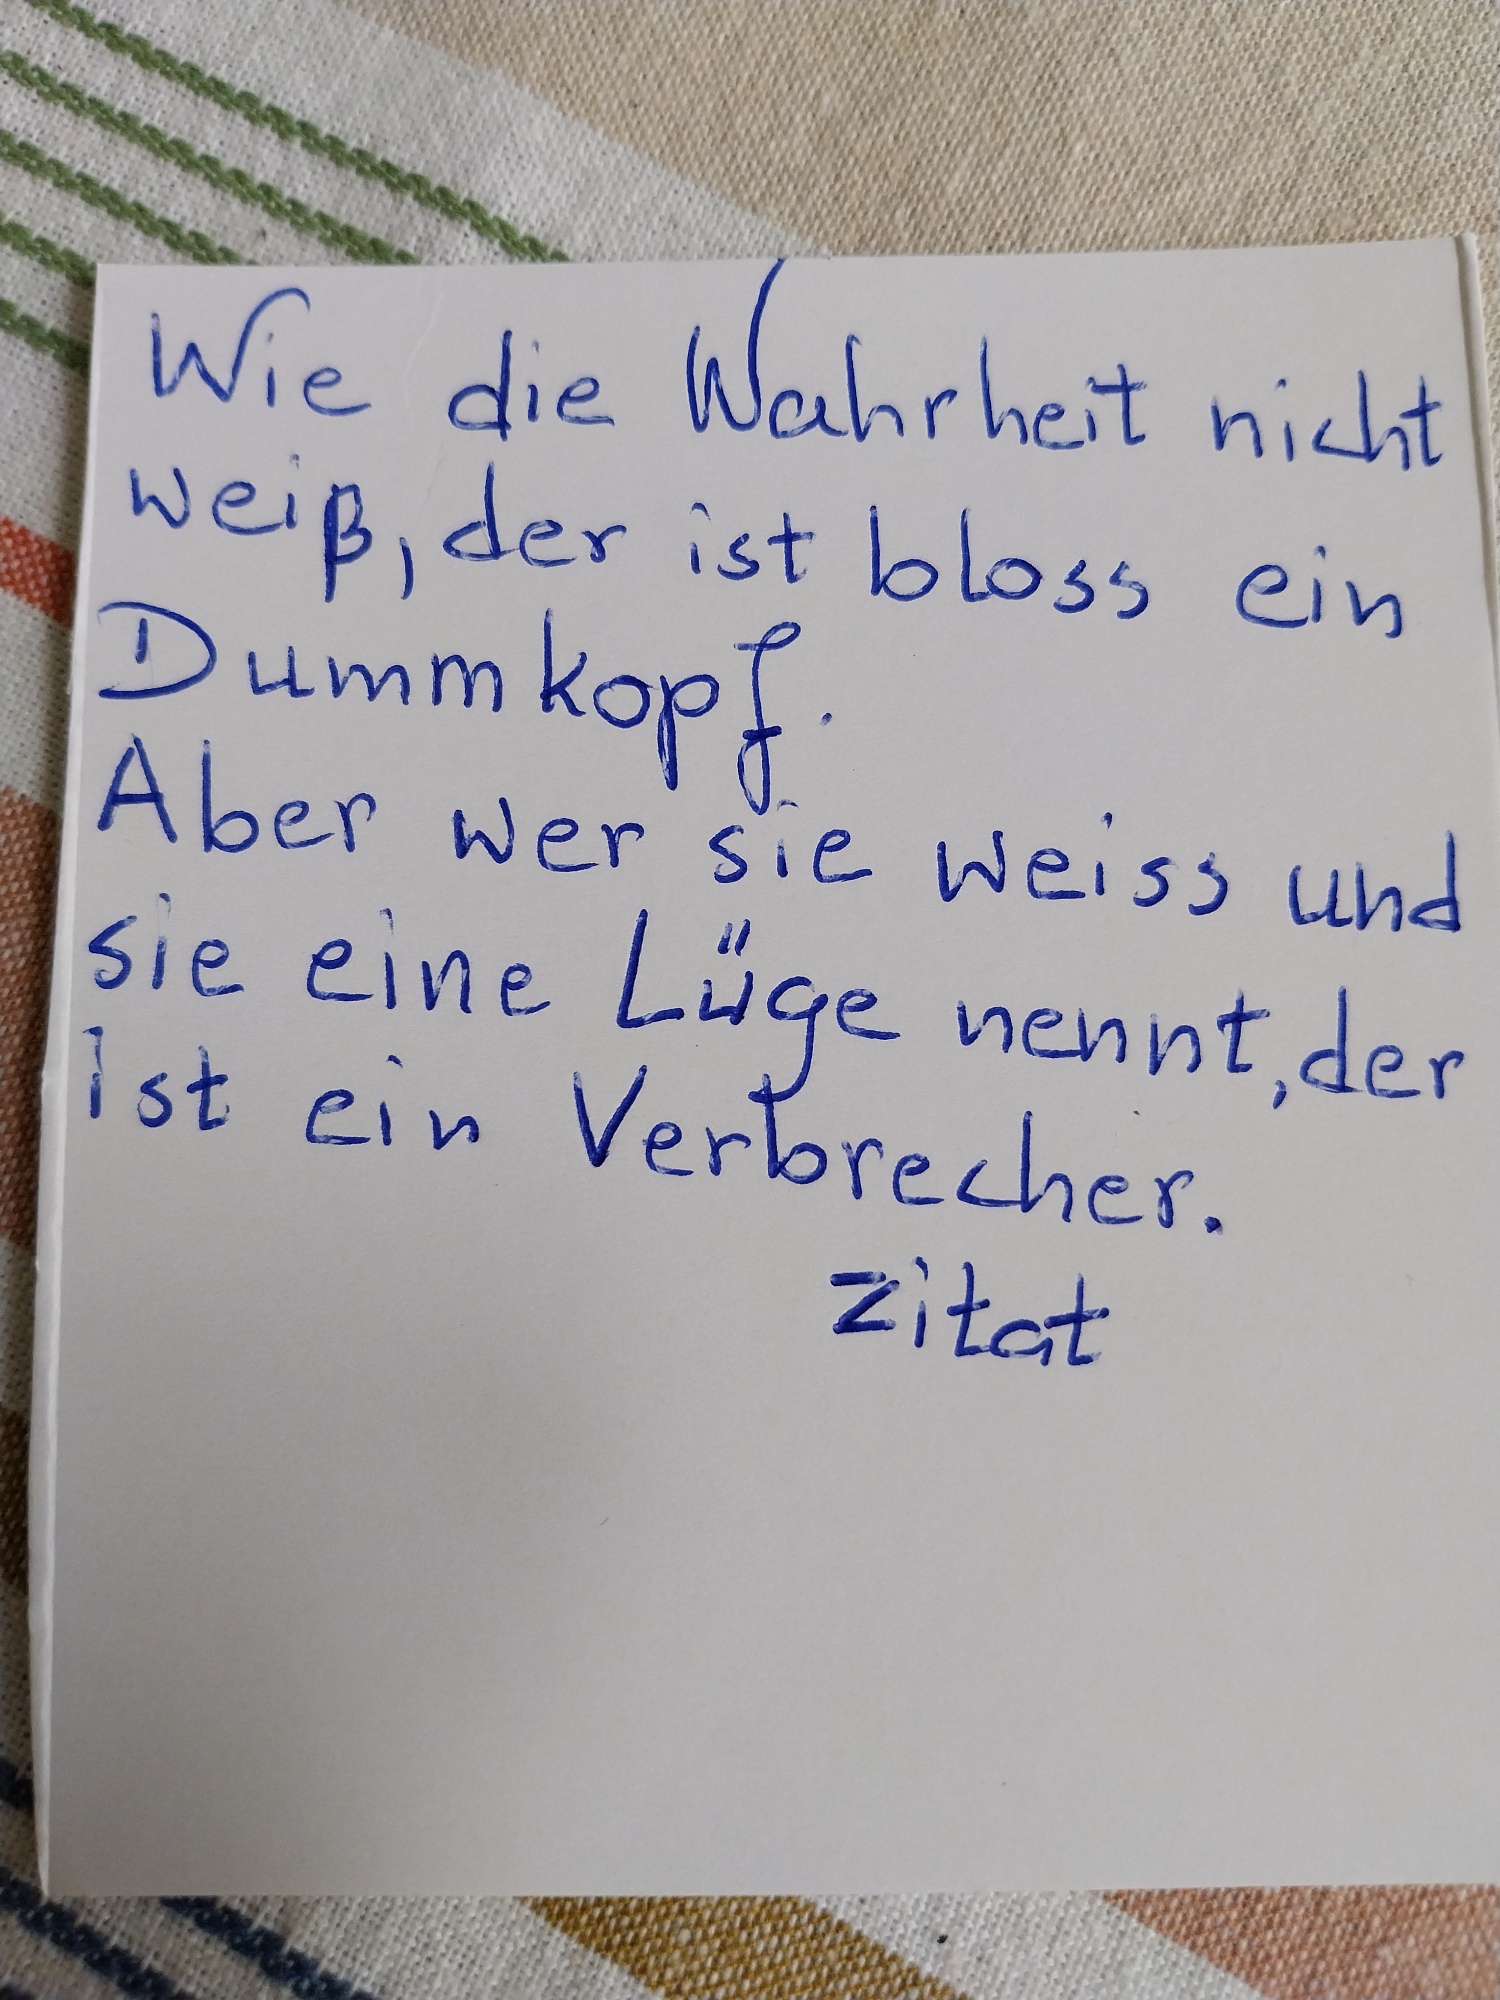 Wie die Wahrheit nicht
weiß, der ist bloss ein
Dummkopf.
Aber wer sie weiss und
sie eine Lüge nennt, der
ist ein Verbrecher.
Zitat